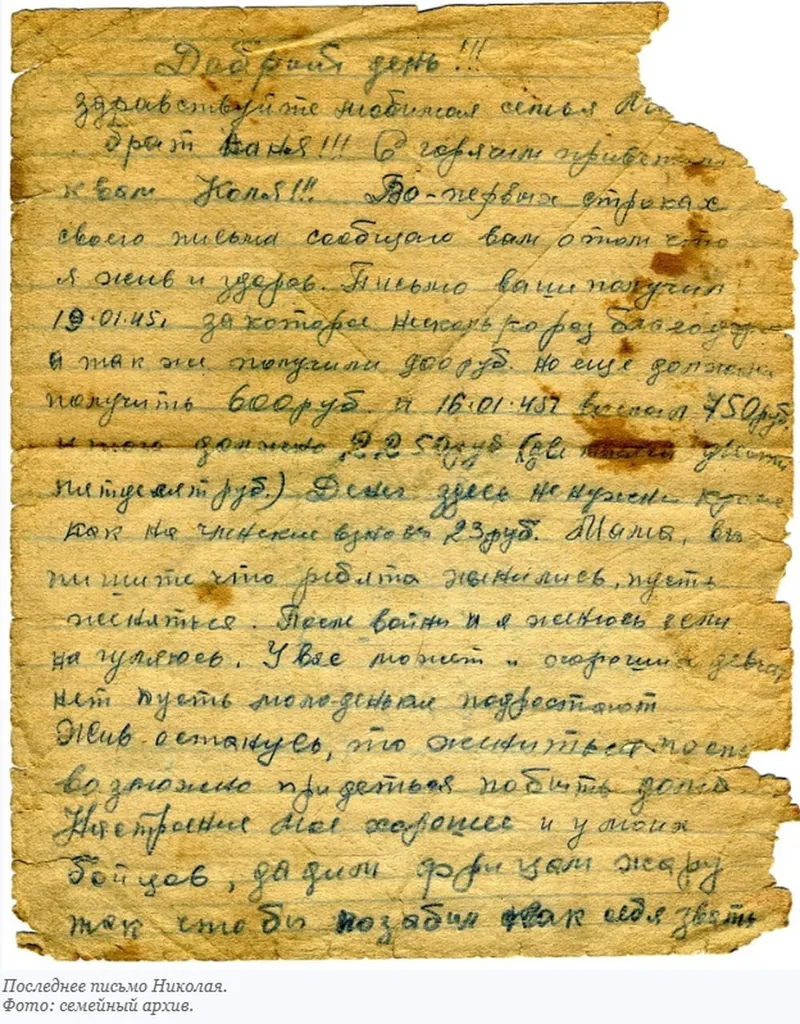 Добрый день!!!
здравствуйте любимая семья
брат Ваня!!! С горячим приветом
к вам Коля!!! Во-первых строках
своего письма сообщаю вам о том что
я жив и здоров. Письмо ваши получил
19.01.45г за которое несколько раз
а так же получили руб. но еще должны
получить 600 руб. и 16.01.45г выслал 750 руб.
итого должно 2,250 руб (две двести
пятдесят руб.) Денег здесь не нужно кроме
как на членские взносы 23 руб. Мама, вы
пишите что ребята женились, пусть
женяться. После войны и я женюсь если
на гуляюсь. У вас может и хороших
нет пусть молоденькая подростают
Жив останусь, то жениться
возможно придеться побыть дома.
Настроение мое хорошее и у моих
бойцов, дадим фрицам жару
так что бы позабыл как себя звать
Последнее письмо Николая.
Фото: семейный архив.